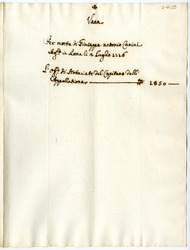 Vaca
Per morte di Giuseppe Antonio Canini
Rogto in Roma li 2 Luglio 1726
L'offo di Notariato del Capitano dell'
Appellatione 1850